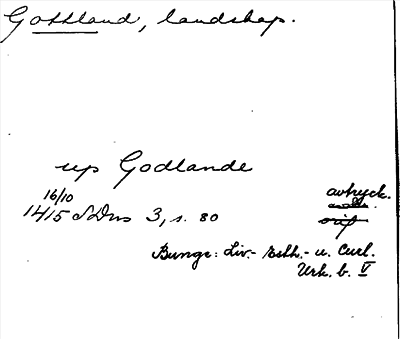 Gottland, landskap.
up Godlande
16/10
1415 SDns 3, s. 80
avtryck.
orig
Bunge: Liv.- Esth.- u. Curl.
Urk. b. V